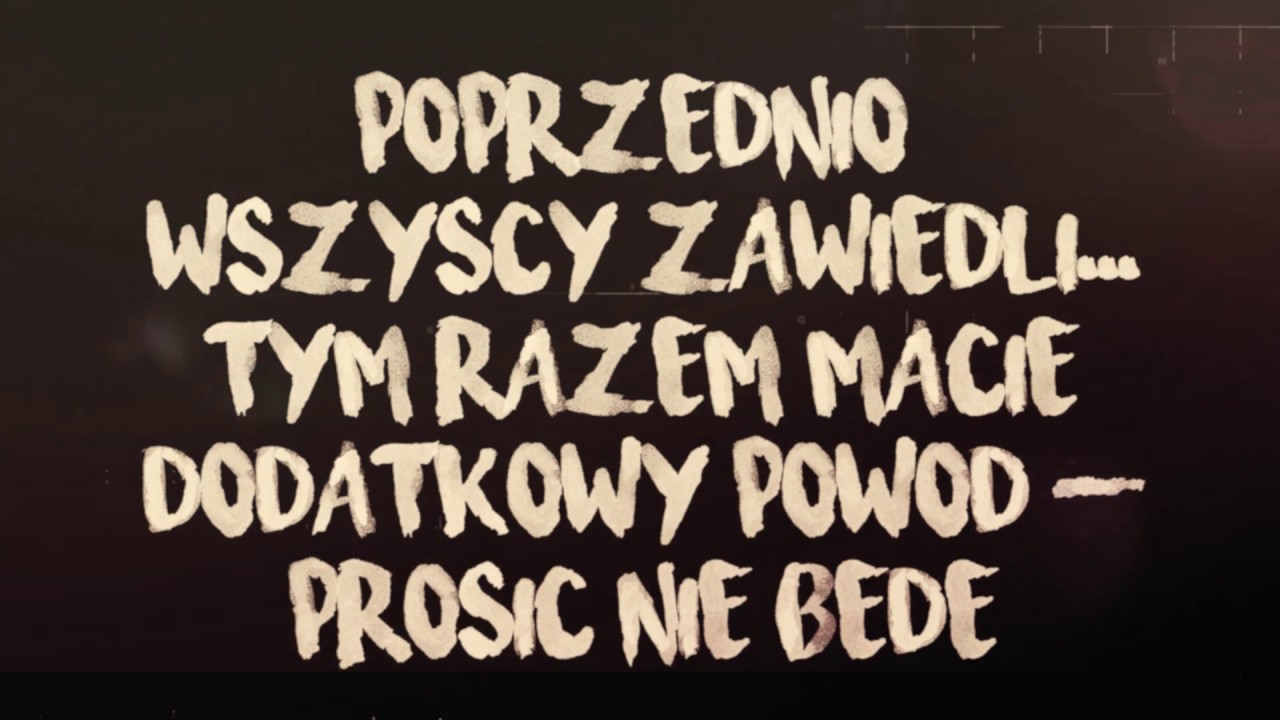 POPRZEDNIO
WSZYSCY ZAWIEDLI...
TYM RAZEM MACIE
DODATKOWY POWOD —
PROSIC NIE BEDE